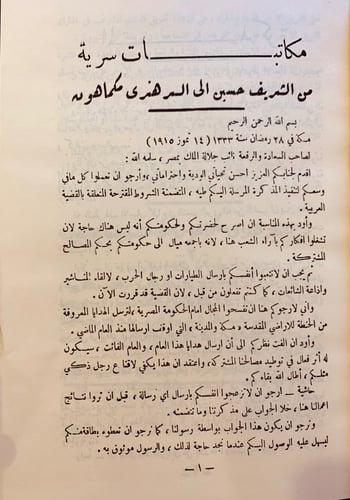 مكاتبــــــات سرية
من الشريف حسين الى السر هنرى مكماهون
بسم الله الرحمن الرحيم
مكة في ٢٨ رمضان سنة ١٣٣٣ ( ١٤ تموز ١٩١٥ )
لصاحب السعادة والرفعة نائب جلالة الملك بمصر ، سلمه الله :
اقدم لجنابكم العزيز احسن تحياتي الودية واحتراماتي ، وارجو ان تعملوا كل مافي
وسعكم لتنفيذ المذكرة المرسلة اليكم طيه ، المتضمنة الشروط المقترحة المتعلقة بالقضية
العربية .
وأود بهذه المناسبة ان اصرح لحضرتكم ولحكومتكم أنه ليس هناك حاجة لان
تشغلوا افكاركم بآراء الشعب هنا ، لانه باجمعه ميال الى حكومتكم بحكم المصالح
المشتركة .
ثم يجب ان لاتتعبوا أنفسكم بارسال الطيارات او رجال الحرب ، لالقاء المناشير
واذاعة الشائعات ، كما كنتم تفعلون من قبل ، لان القضية قد قررت الآن .
واني لارجوكم هنا ان تفسحوا المجال امام الحكومة المصرية ، لترسل الهدايا المعروفة
من الحنطة للاراضي المقدسة ، مكة والمدينة ، التي اوقف ارسالها منذ العام الماضي .
وأود ان الفت نظركم الى أن ارسال هدايا هذا العام ، والعام الفائت ، سيكون
له أثر فعال في توطيد مصالحنا المشتركة ، واعتقد ان هذا يكفي لاقناع رجل ذكي
مثلكم ، أطال الله بقاءكم .
حاشية — ارجو ان لاتزعجوا انفسكم بارسال اي رسالة ، قبل ان تروا نتائج
اعمالنا هنا ، خلا الجواب على مذكرتنا وما تتضمنه .
ونرجو ان يكون هذا الجواب بواسطة رسولنا ، كما نرجو ان تعطوه بطاقة منكم
ليسهل عليه الوصول اليكم عندما نجد حاجة لذلك ، والرسول موثوق به .
— ١ —